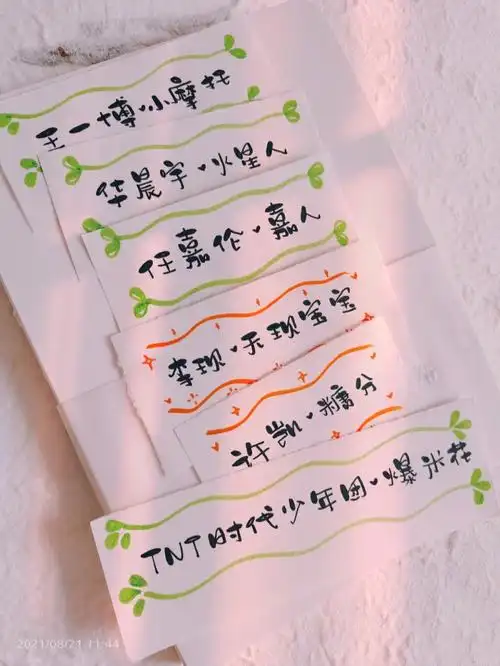 王一博·小摩托
华晨宇·火星人
任嘉伦·嘉人
李现·天现宝宝
许凯·糖分
TNT时代少年团·爆米花
2021/08/21 11:44